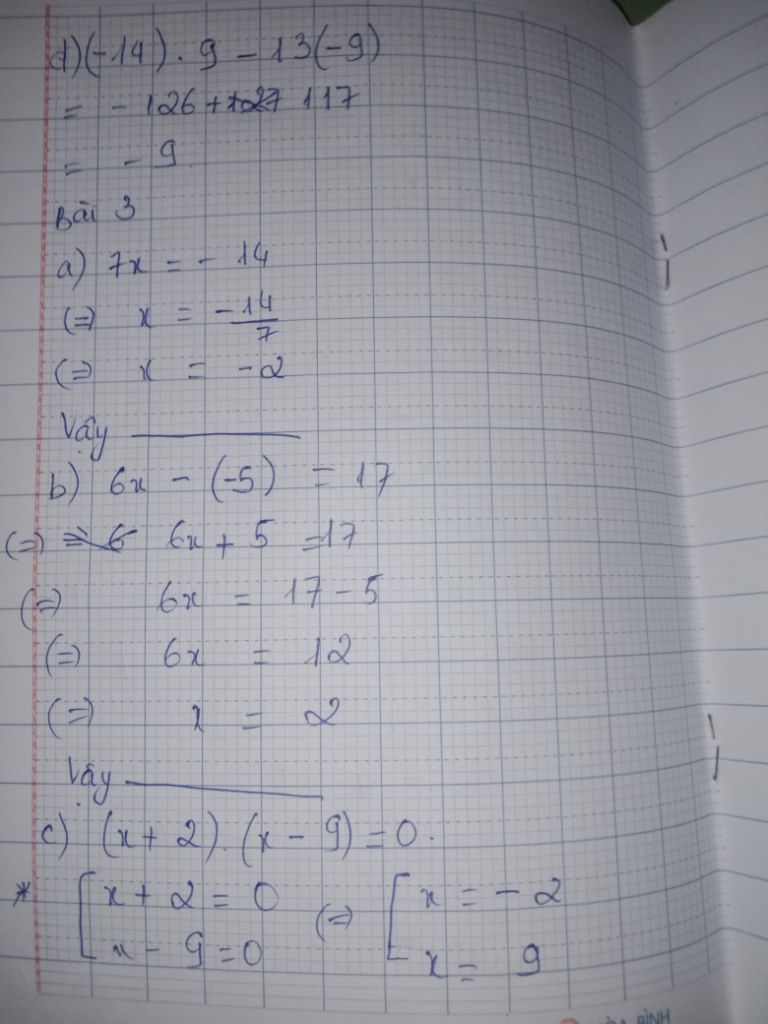 d) (-14) . 9 - 13(-9)
= - 126 + 127 117
= - 9
Bài 3
a) 7x = - 14
(=) x = -14/7
(=) x = -2
Vậy
b) 6x - (-5) = 17
(=) = 6 6x + 5 = 17
(=) 6x = 17 - 5
(=) 6x = 12
(=) x = 2
Vậy
c) (x + 2) . (x - 9) = 0.
* [ x + 2 = 0 (=) [ x = - 2
x - 9 = 0 x = 9